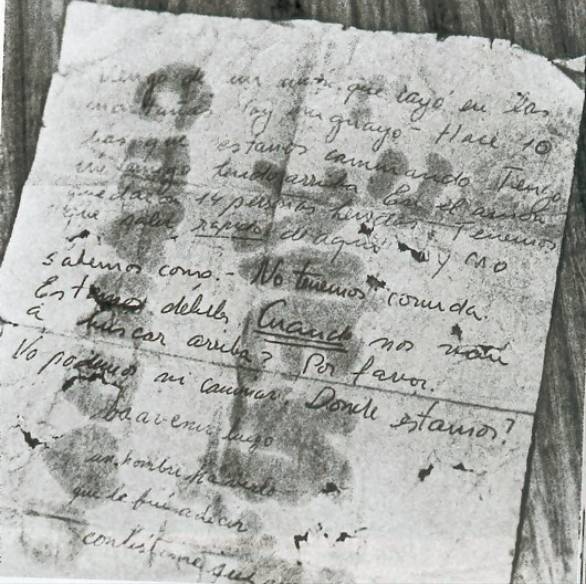 Vengo de un avión que cayó en las
montañas. Soy uruguayo. Hace 10
días que estamos caminando. Tengo
un amigo herido arriba. En el avión
quedaron 14 personas heridas. Tenemos
que salir rapido de aquí y no
sabemos como.- No tenemos comida.
Estamos débiles. Cuando nos van
a buscar arriba? Por favor.
No podemos ni caminar. Donde estamos?
va a venir luego
un hombre
que le fué a decir